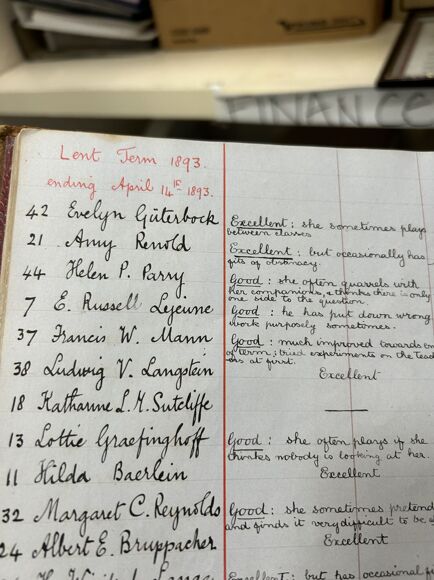 FINANCE
Lent Term 1893.
ending April 14th 1893.
42 Evelyn Güterbock Excellent: she sometimes plays
between classes
21 Amy Renold Excellent: but occasionally has
fits of obstinacy.
44 Helen P. Parry Good: she often quarrels with
her companions, & thinks there is only
one side to the question.
7 E. Russell Lejeune Good: he has put down wrong
work purposely sometimes.
37 Francis W. Mann Good: much improved towards
of term; tried experiments on the
at first.
38 Ludwig V. Langstein Excellent
18 Katharine L. M. Sutcliffe —
13 Lottie Graefinghoff Good: she often plays if she
thinks nobody is looking at her.
11 Hilda Baerlein Excellent
32 Margaret C. Reynolds Good: she sometimes
and finds it very difficult to be
24 Albert E. Bruppacher Excellent
Excellent: but has occasional